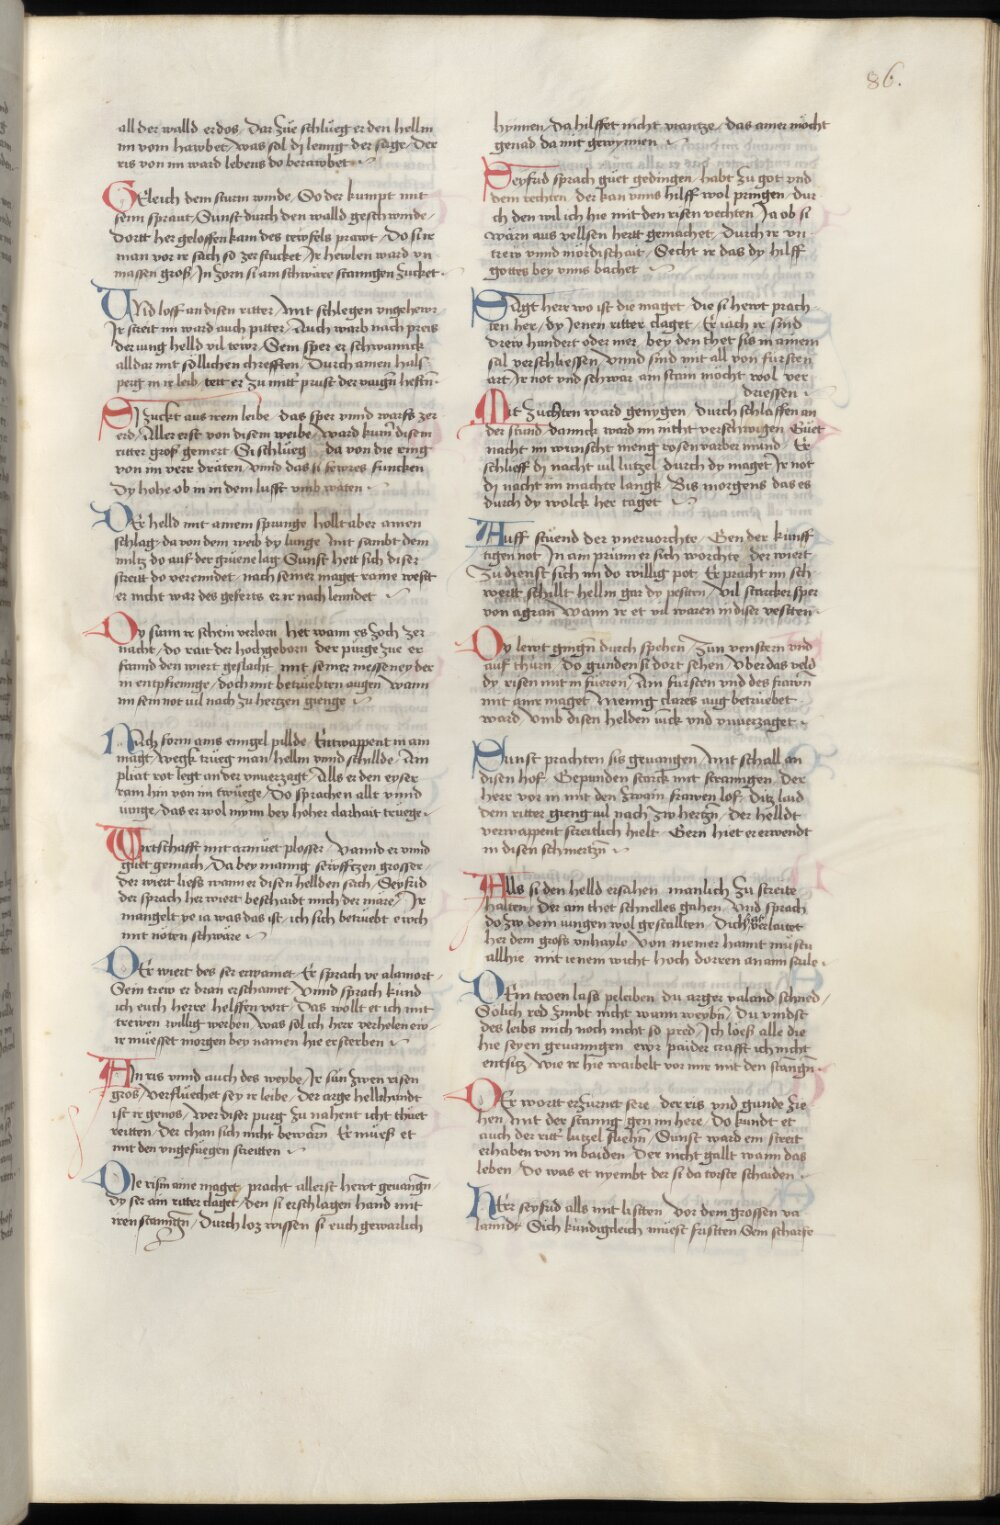 86.
all der walld erdos / Dar zue schlueg er den hellm
im vom hawbet / was sol di lenng der sage / Der
ris von im ward lebens do berawbet
GEleich dem sturm winde / So der kumpt mit
seim spraut / Sunst durch den walld geschwinde /
dortt her geloffen kam des tewfels prawt / Do si ir
man vor ir sach so zerstucket / Ir hewlen ward vn
massen groß / In zorn si am schwäre stanngen zucket
VNd loff an disen ritter / Mit schlegen vngehewr
Ir streit im ward auch pitter / Auch ward nach preis
der iung helld vil tewr / Sein sper er schwannck
alldar mit söllichen chrefften / Durch ainen hals
perg in ir leib / tett er zu mitt prust der vaign hefften
SI zuckt aus irem leibe / das sper vnnd warffs zer
erd / Aller erst von disem weibe / ward kum disem
ritter groß gemert / Si schlueg da von die ring
von im verr dräten / vnnd das si fewres funcken
Dy hohe ob in in dem lufft vmb wäten
DEr helld mit ainem sprunge / hollt aber ainen
schlag / da von dem weib dy lunge / mit sambt dem
miltz do auf der grüene lag / Sunst hett sich diser
streit do verenndet / nach seiner maget rame westt
er nicht war des geferts er ir nach lenndet
DY sunn ir schein verlorn / het wann es zoch zer
nacht / do rait der hochgeborn / der pürge zue er
fannd den wiert geslacht / mit seiner messeney der
in entpfienge / doch mit betruebten augen / wann
im sein not vil nach zu hertzen gienge
NAch form ains enngel pillde / Entwappent in ain
magt / Wegk trueg man hellm vnnd schillde / Ain
pliat rot legt an der vnuerzagt / Alls er den eyser
ram hin von im twuege / Do sprachen allt vnnd
iunge / das er wol mynn bey hoher clarhait truege
WIrtschafft mit armuet plosser / Vannd er vnnd
guet gemach / Da bey manig sewfftzen grosser
der wiert liess wann er disen hellden sach / Seyfrid
der sprach her wiert beschaidt mich der mare / Ir
mangelt ye ia was das ist / ich sich betruebt euch
mit nöten schwäre
DEr wiert des ser erwamet / Er sprach ye alamort
Sein trew er dran erschamet / Vnnd sprach kund
ich euch herre helffen vort / Das wollt et ich mit
trewen willig werben / was sol ich herr verhelen ew
ir muesset morgen bey namen hie ersterben
AIn ris vnnd auch des weybe / Ir sün zwen risen
gros / Verfluechet sey ir leibe / Der arge hellehundt
ist ir genos / Wer diser purg zu nahent icht thuet
reitten / Der chan sich nicht bewarn / Er muess et
mit den vngefuegen streitten
DIe risin aine maget / pracht allerst hewt geuangn
dy ser ain ritter claget / den si erschlagen hand mit
iren stanngn / Durch loz wissen si euch gewärlich
hynnen / da hilffet nicht wantze / das ainer möcht
genad da mit gewynnen
SEyfrid sprach guet gedingen / habt zu got vnd
dem rechten / der kan vnns hilff wol pringen / dur
ch den wil ich hie mit den risen vechten / Ja ob si
wärn aus vellsen hertt gemachet / Durch ir vn
trew vnnd mördischait / Secht ir das dy hilff
gottes bey vnns bachet
SAgt herr wo ist die maget / die si hewt prach
ten her / dy Jenen ritter claget / Er iach ir sind
drew hundert oder mer / bey den thet sis in ainem
sal verschliessen / Vnnd sind mit all von fursten
art / Ir not vnd schwär ain stain möcht wol ver
driessen
MIt züchten ward genygen / durch schlaffen an
der stund / dannck ward im nicht verschwigen / Guet
nacht im wunscht meng rosenvarber mund / Er
schlieff di nacht vil lutzel durch dy maget / Ir not
di nacht im machte langk / Bis morgens das es
durch dy wolck her taget
AUff stuend der vnervorchte / Gen der kunff
tigen not / In am prunn er sich worchte / der wiert
zu dienst sich im do willig pot / Er pracht im sch
wertt schillt hellm gar dy pessten / vil starcker sper
von agran / wann ir et vil waren in diser vessten
DY lewt gingn durch spehen / Zun venstern vnd
auf thürn / Do gunden si dort sehen / Vber das veld
dy risen mit in füeren / Ain fursten vnd des frawn
mit ainr maget / Mennig clares aug betruebet
ward / Vmb disen helden iunck vnd vnuerzaget
SUnst prachten sis geuangen / Mit schall an
disen hof / Gepunden starck mit stranngen / Der
herr vor in mit den zwain frawen lof / Ditz laid
dem ritter gieng vil nach zw hertzn / der helldt
verwappent streitlich hielt / Gern hiet er erwendt
in disen schmertzn
ALls si den helld ersahen / manlich zu streite
halten / Der ain thet schnelles gahen / Vnd sprach
do zw dem iungen wol gestallten / Dich hat verlaittet
her dem gross vnhayle / Von meiner hannt muestu
allhie / mit ienem wicht hoch dorren an aim saile
DEin troen lass peleiben / du arger valand schned /
Solich red zimbt nicht wann weybn / Du vindst
des leibs mich noch nicht so pred / Ich loess alle die
hie seyen geuanngen / ewr paider crafft ich nicht
entsitz / Wie ir hie waibelt vor mir mit den stangn
DEr wortt erzürnet sere / der ris vnd gunde zie
hen / Mit der stanng gen im here / Do kundt et
auch der ritt' lutzel fliehn / Sunst ward ein streit
erhaben von in baiden / Der nicht gallt wann das
leben / Do was et nyembt der si da torste schaiden
HEr seyfrid alls mit listten / Vor dem grossen va
lanndt / Sich kündigcleich muest fristten / Sein scharfe